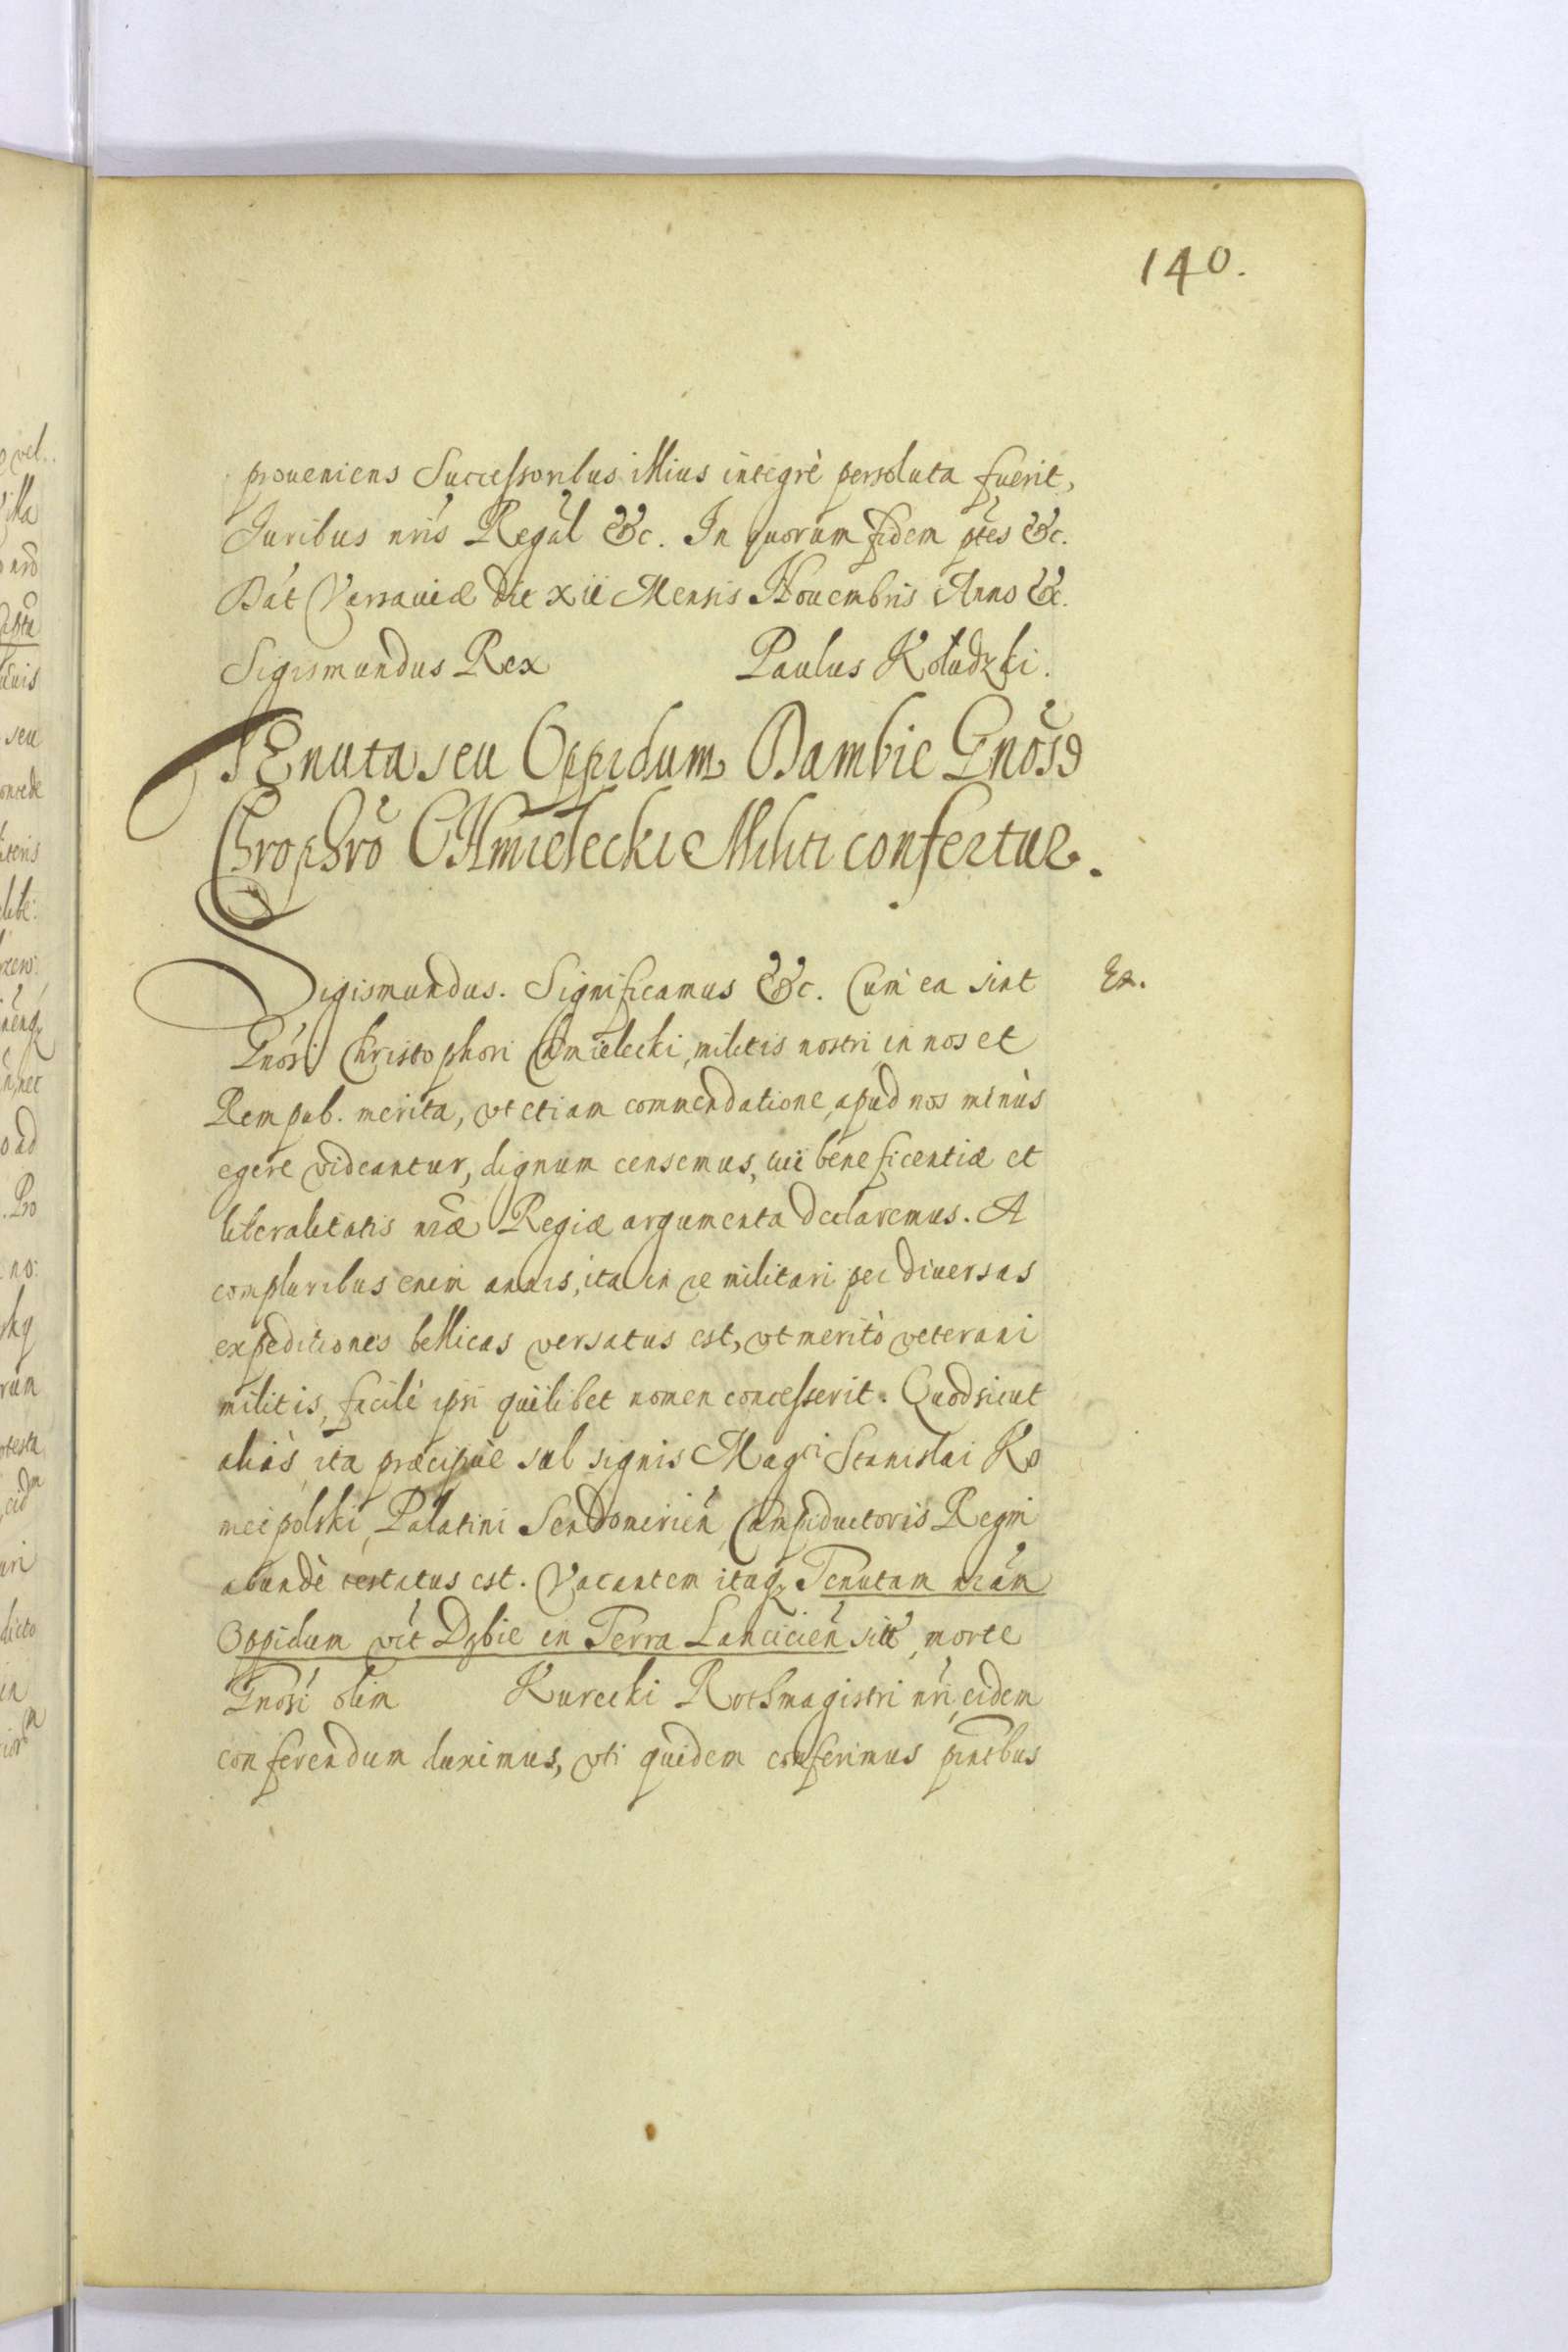 140.
proueniens Successoribus illius integrè persoluta fuerit,
Iuribus nris Regal &c. In quorum fidem ptes &c.
Dat Varsauiæ die xii Mensis Nouembris Anno &c.
Sigismundus Rex Paulus Kołudzki.
TEnuta seu Oppidum Dambie Gnoso
Chrophro CHmielecki Militi confertur.
Sigismundus. Significamus &c. Cum ea sint
Ex.
Gnosi Christophori Chmielecki, militis nostri in nos et
Rempub. merita, vt etiam commendatione, apud nos minùs
egere videantur, dignum censemus, cui beneficentiæ et
liberalitatis nræ Regiæ argumenta declaremus. A
compluribus enim annis, ita in re militari per diuersas
expeditiones bellicas versatus est, vt meritò veterani
militis, facilè ipsi quilibet nomen concesserit. Quod sicut
aliàs ita præcipuè sub signis Magci Stanislai Ko
niecpolski, Palatini Sendomirien, Campiductoris Regni
abundè testatus est. Vacantem itaq Tenutam nram
Oppidum vtt Dąbie in Terra Lancicien sitt, morte
Gnosi olim Kurecki Rothmagistri nri, eidem
conferendum duximus, vti quidem conferimus pntbus